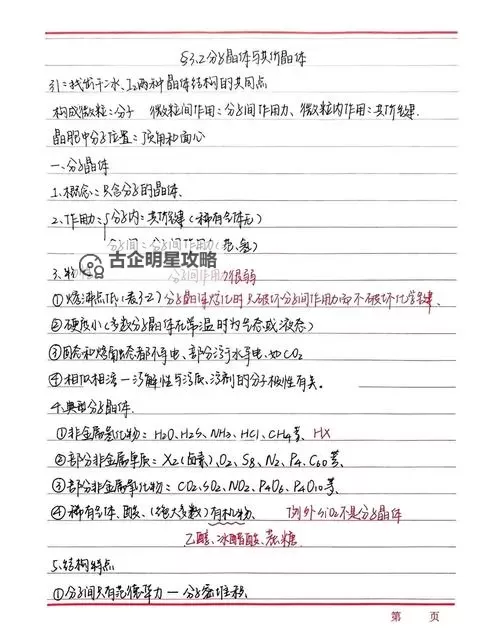 §3.2分子晶体与共价晶体
引:找出干冰、I₂两种晶体结构的共同点
构成微粒:分子 微粒间作用:分子间作用力、微粒内作用:共价键
晶胞中分子位置:顶角和面心
一、分子晶体
1.概念:只含分子的晶体.
2.作用力:{分子内:共价键(稀有气体无)
分子间:分子间作用力(范、氢)
古企明星攻略
3.物 分子间作用力很弱
①熔沸点低(表3-2)分子晶体熔化时只破坏分子间作用力而不破坏化学键.
②硬度小(多数分子晶体在常温时为气态或液态)
③固态和熔融态都不导电、部分溶于水导电.如CO₂
④相似相溶—溶解性与溶质、溶剂的分子极性有关。
4.典型分子晶体.
①非金属氢化物:H₂O、H₂S、NH₃、HCl、CH₄等、HX
②部分非金属单质:X₂(卤素)、O₂、S₈、N₂、P₄、C₆₀等、
③部分非金属氧化物:CO₂、SO₂、NO₂、P₄O₆、P₄O₁₀等、
④稀有气体、酸、(绝大多数)有机物、 例外SiO₂不是分子晶体
乙醇、冰醋酸、蔗糖.
5.结构特点
①分子间只有范德华力—分子密堆积
第 页